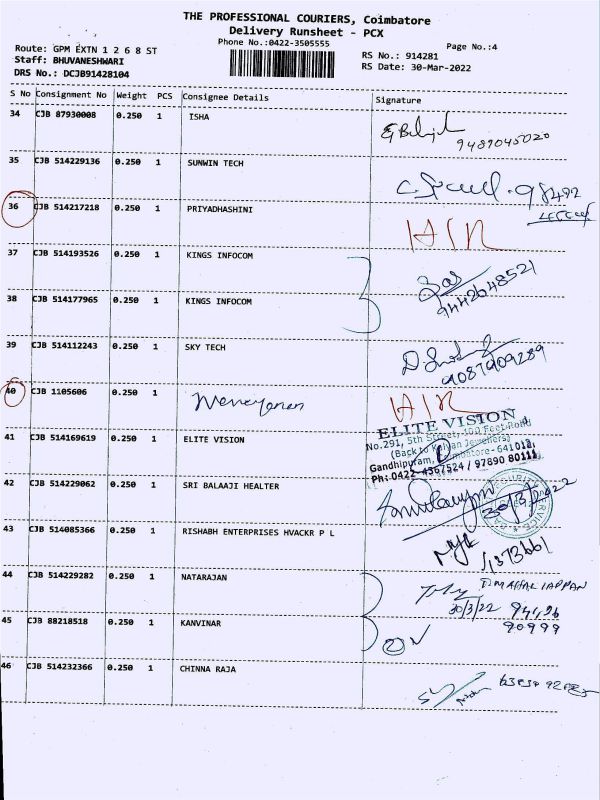 THE PROFESSIONAL COURIERS, Coimbatore
Delivery Runsheet - PCX
Phone No.:0422-3505555
Page No.:4
Route: GPM EXTN 1 2 6 8 ST
Staff: BHUVANESHWARI
DRS No.: DCJB91428104
RS No.: 914281
RS Date: 30-Mar-2022
S No Consignment No Weight PCS Consignee Details Signature
34 CJB 87930008 0.250 1 ISHA
9489045020
35 CJB 514229136 0.250 1 SUNWIN TECH
36 CJB 514217218 0.250 1 PRIYADHASHINI
37 CJB 514193526 0.250 1 KINGS INFOCOM
9442648521
38 CJB 514177965 0.250 1 KINGS INFOCOM
39 CJB 514112243 0.250 1 SKY TECH
9087909289
40 CJB 1105606 0.250 1
41 CJB 514169619 0.250 1 ELITE VISION
ELITE VISION
No.291, 5th Street, 100 Feet Road
(Back to Kalyan Jewellers)
Gandhipuram, Coimbatore - 641012.
Ph: 0422-4367524 / 97890 80111
42 CJB 514229062 0.250 1 SRI BALAAJI HEALTER
30/3/2022
43 CJB 514085366 0.250 1 RISHABH ENTERPRISES HVACKR P L
44 CJB 514229282 0.250 1 NATARAJAN
30/3/22
45 CJB 88218518 0.250 1 KANVINAR
90999
46 CJB 514232366 0.250 1 CHINNA RAJA